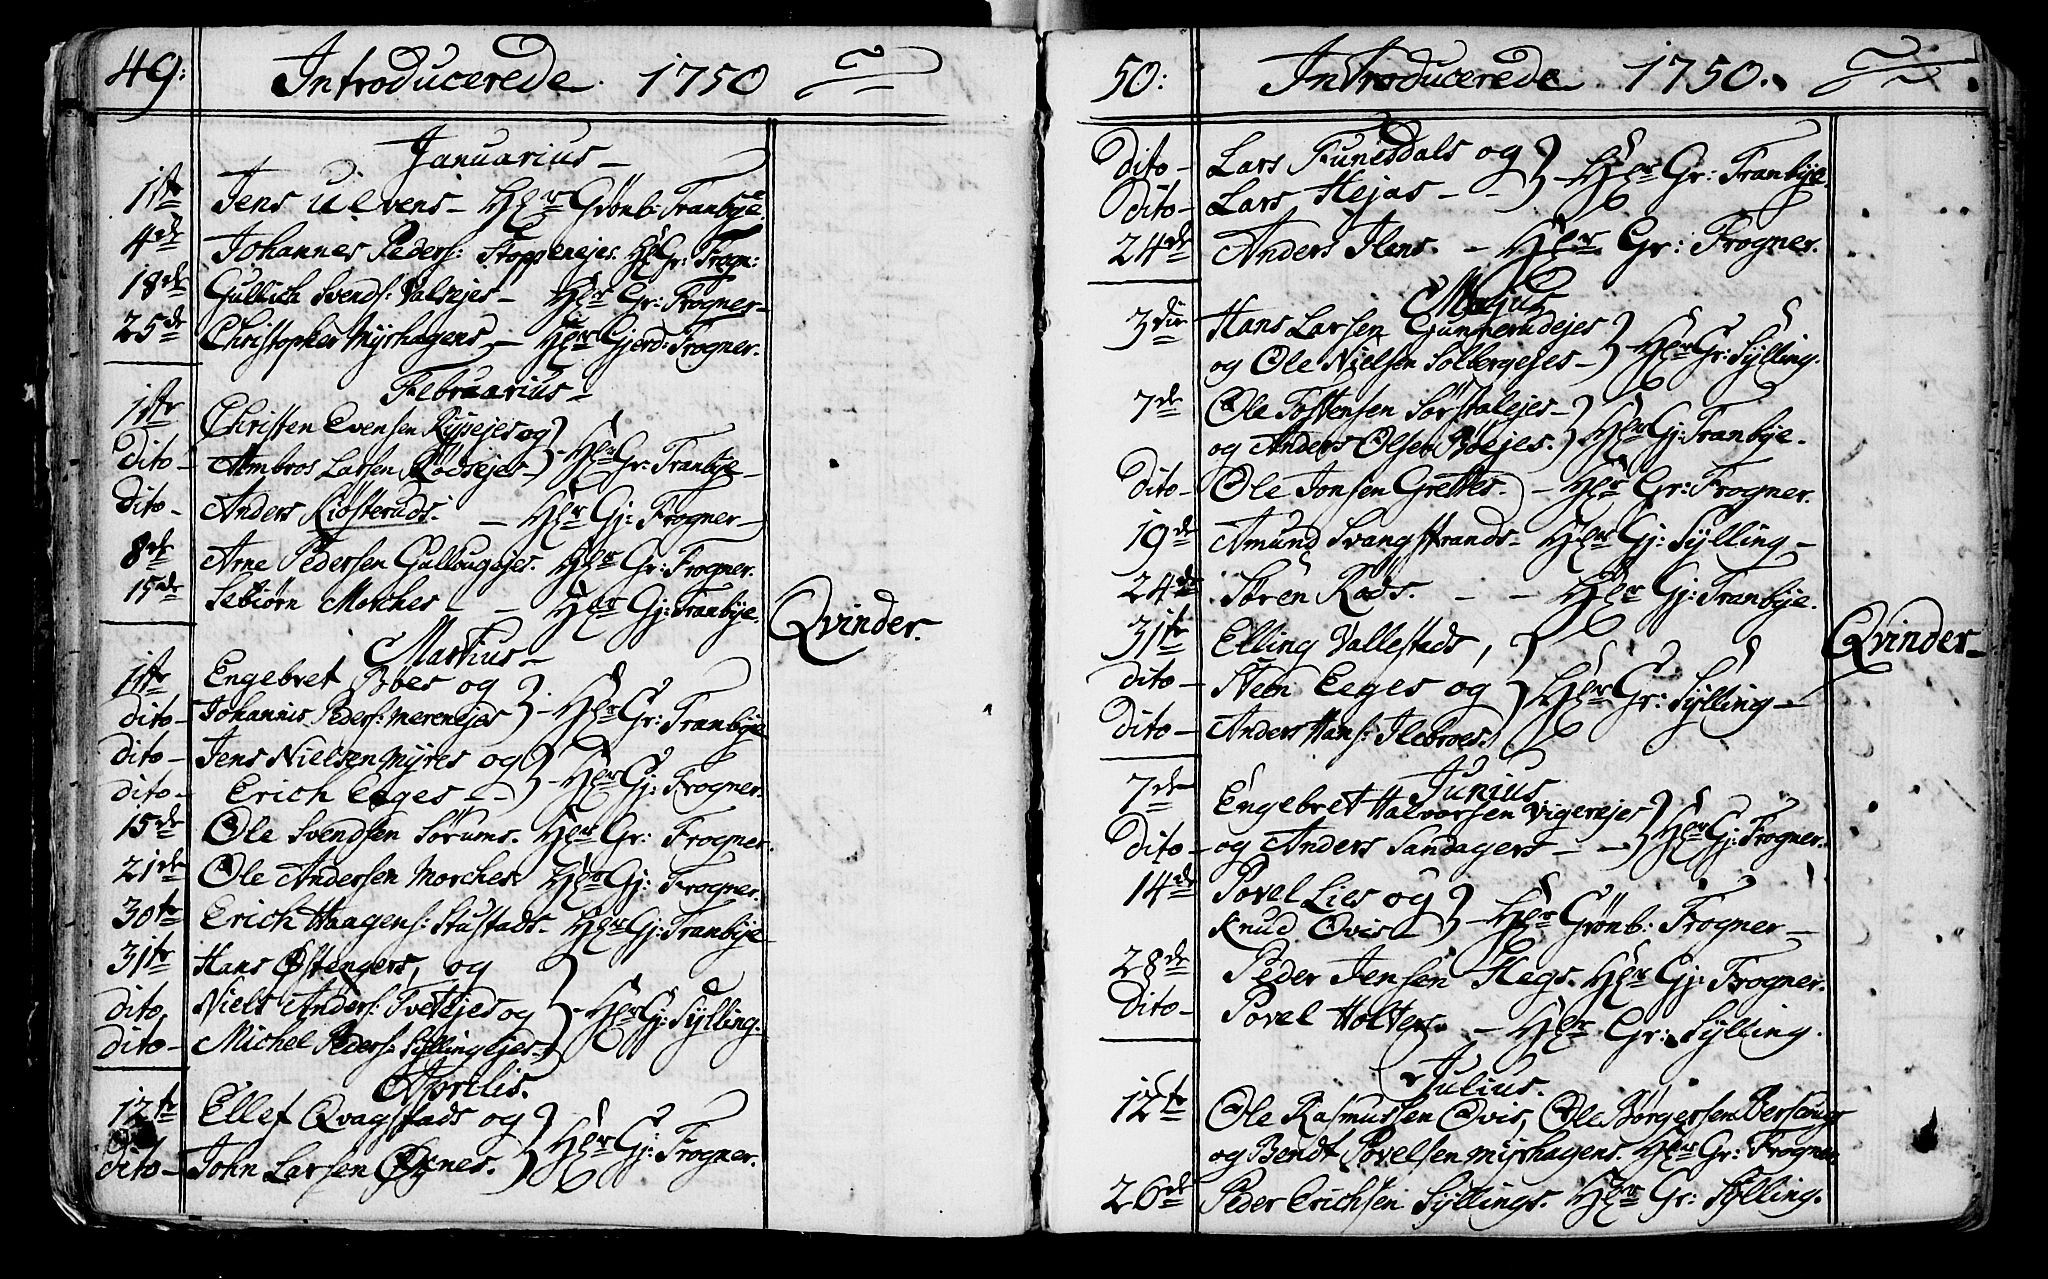 49: Introducerede 1750
Januarius
1ste Jens Ulvens – Hr Grönb: Tranbye
4de Johannes Peders: Stoppenejes. Hr Gr: Frogn:
18de Gullich Svends: Valsejes – Hr Gr: Frogner –
25de Christopher Myrhagens – Hr Gjerd: Frogner.
Februarius –
1ste Christen Evensen Rypejes og
dito – Ambros Larsen Rödsejes – } – Hr Gr: Tranbye –
dito – Anders Kiösteruds. – Hr Gj: Frogner –
8de Arne Pedersen Gullougejes. Hr Gr: Frogner.
15de Sebiörn Morches – – Hr Gj: Tranbye.
Qvinder.
Martius –
1ste Engebret Böes og
dito – Johannis Peders: Merenejes } – Hr Gr: Tranbye
dito – Jens Nielsen Myres og
dito – Erich Eeges – – } – Hr Gj: Frogner.
15de Ole Svendsen Sörums. Hr Gr: Frogner.
21de Ole Andersen Morches. Hr Gj: Frogner.
30te Erich Haagens: Stustads. Hr Gj: Tranbye
31te Hans Östengers, og
dito, Niels Anders: Tvetejes og
dito – Michel Peders: Syllingejes – } – Hr Gj: Sylling –
Aprilis.
12te Ellef Qvagstads og
dito – John Larsen Öxnes. } Hr Gj: Frogner.
50: Introducerede 1750.
dito – Lars Funesdals og
dito – Lars Hejas – – } – Hr Gr: Tranbye.
24de Anders Ilens. – Hr Gr: Frogner.
Majus
3die Hans Larsen Gunnerudejes
og Ole Nielsen Solbergejes – } – Hr Gr: Sylling.
7de Ole Tostensen Sörstalejes –
og Anders Olsen Böejes. } Hr Gj: Tranbye.
dito – Ole Jonsen Grettes. – Hr Gr: Frogner.
19de Amund Svangstrands – Hr Gj: Sylling –
24de Sören Röds. – – Hr Gj: Tranbye.
31te Elling Vallestads,
Qvinder –
dito – Steen Eeges og } Hr Gr: Sylling –
dito – Anders Hans: Ilebroes.
Junius
7de Engebret Halvorsen Vigerejes
dito – og Anders Sandagers – – } Hr Gj: Frogner.
14de Povel Lies og
Knud Qvis – } – Hr Grönb: Frogner –
28de Peder Jensen Hegs. Hr Gj: Frogner.
dito – Povel Holters. – Hr Gr: Sylling.
Julius.
12te Ole Rasmussen Qvis, Ole Börgersen
og Bendt Povelsen Myrhagens. Hr Gr: Frogner
26de Peder Erichsen Syllings. Hr Gr: Sylling.